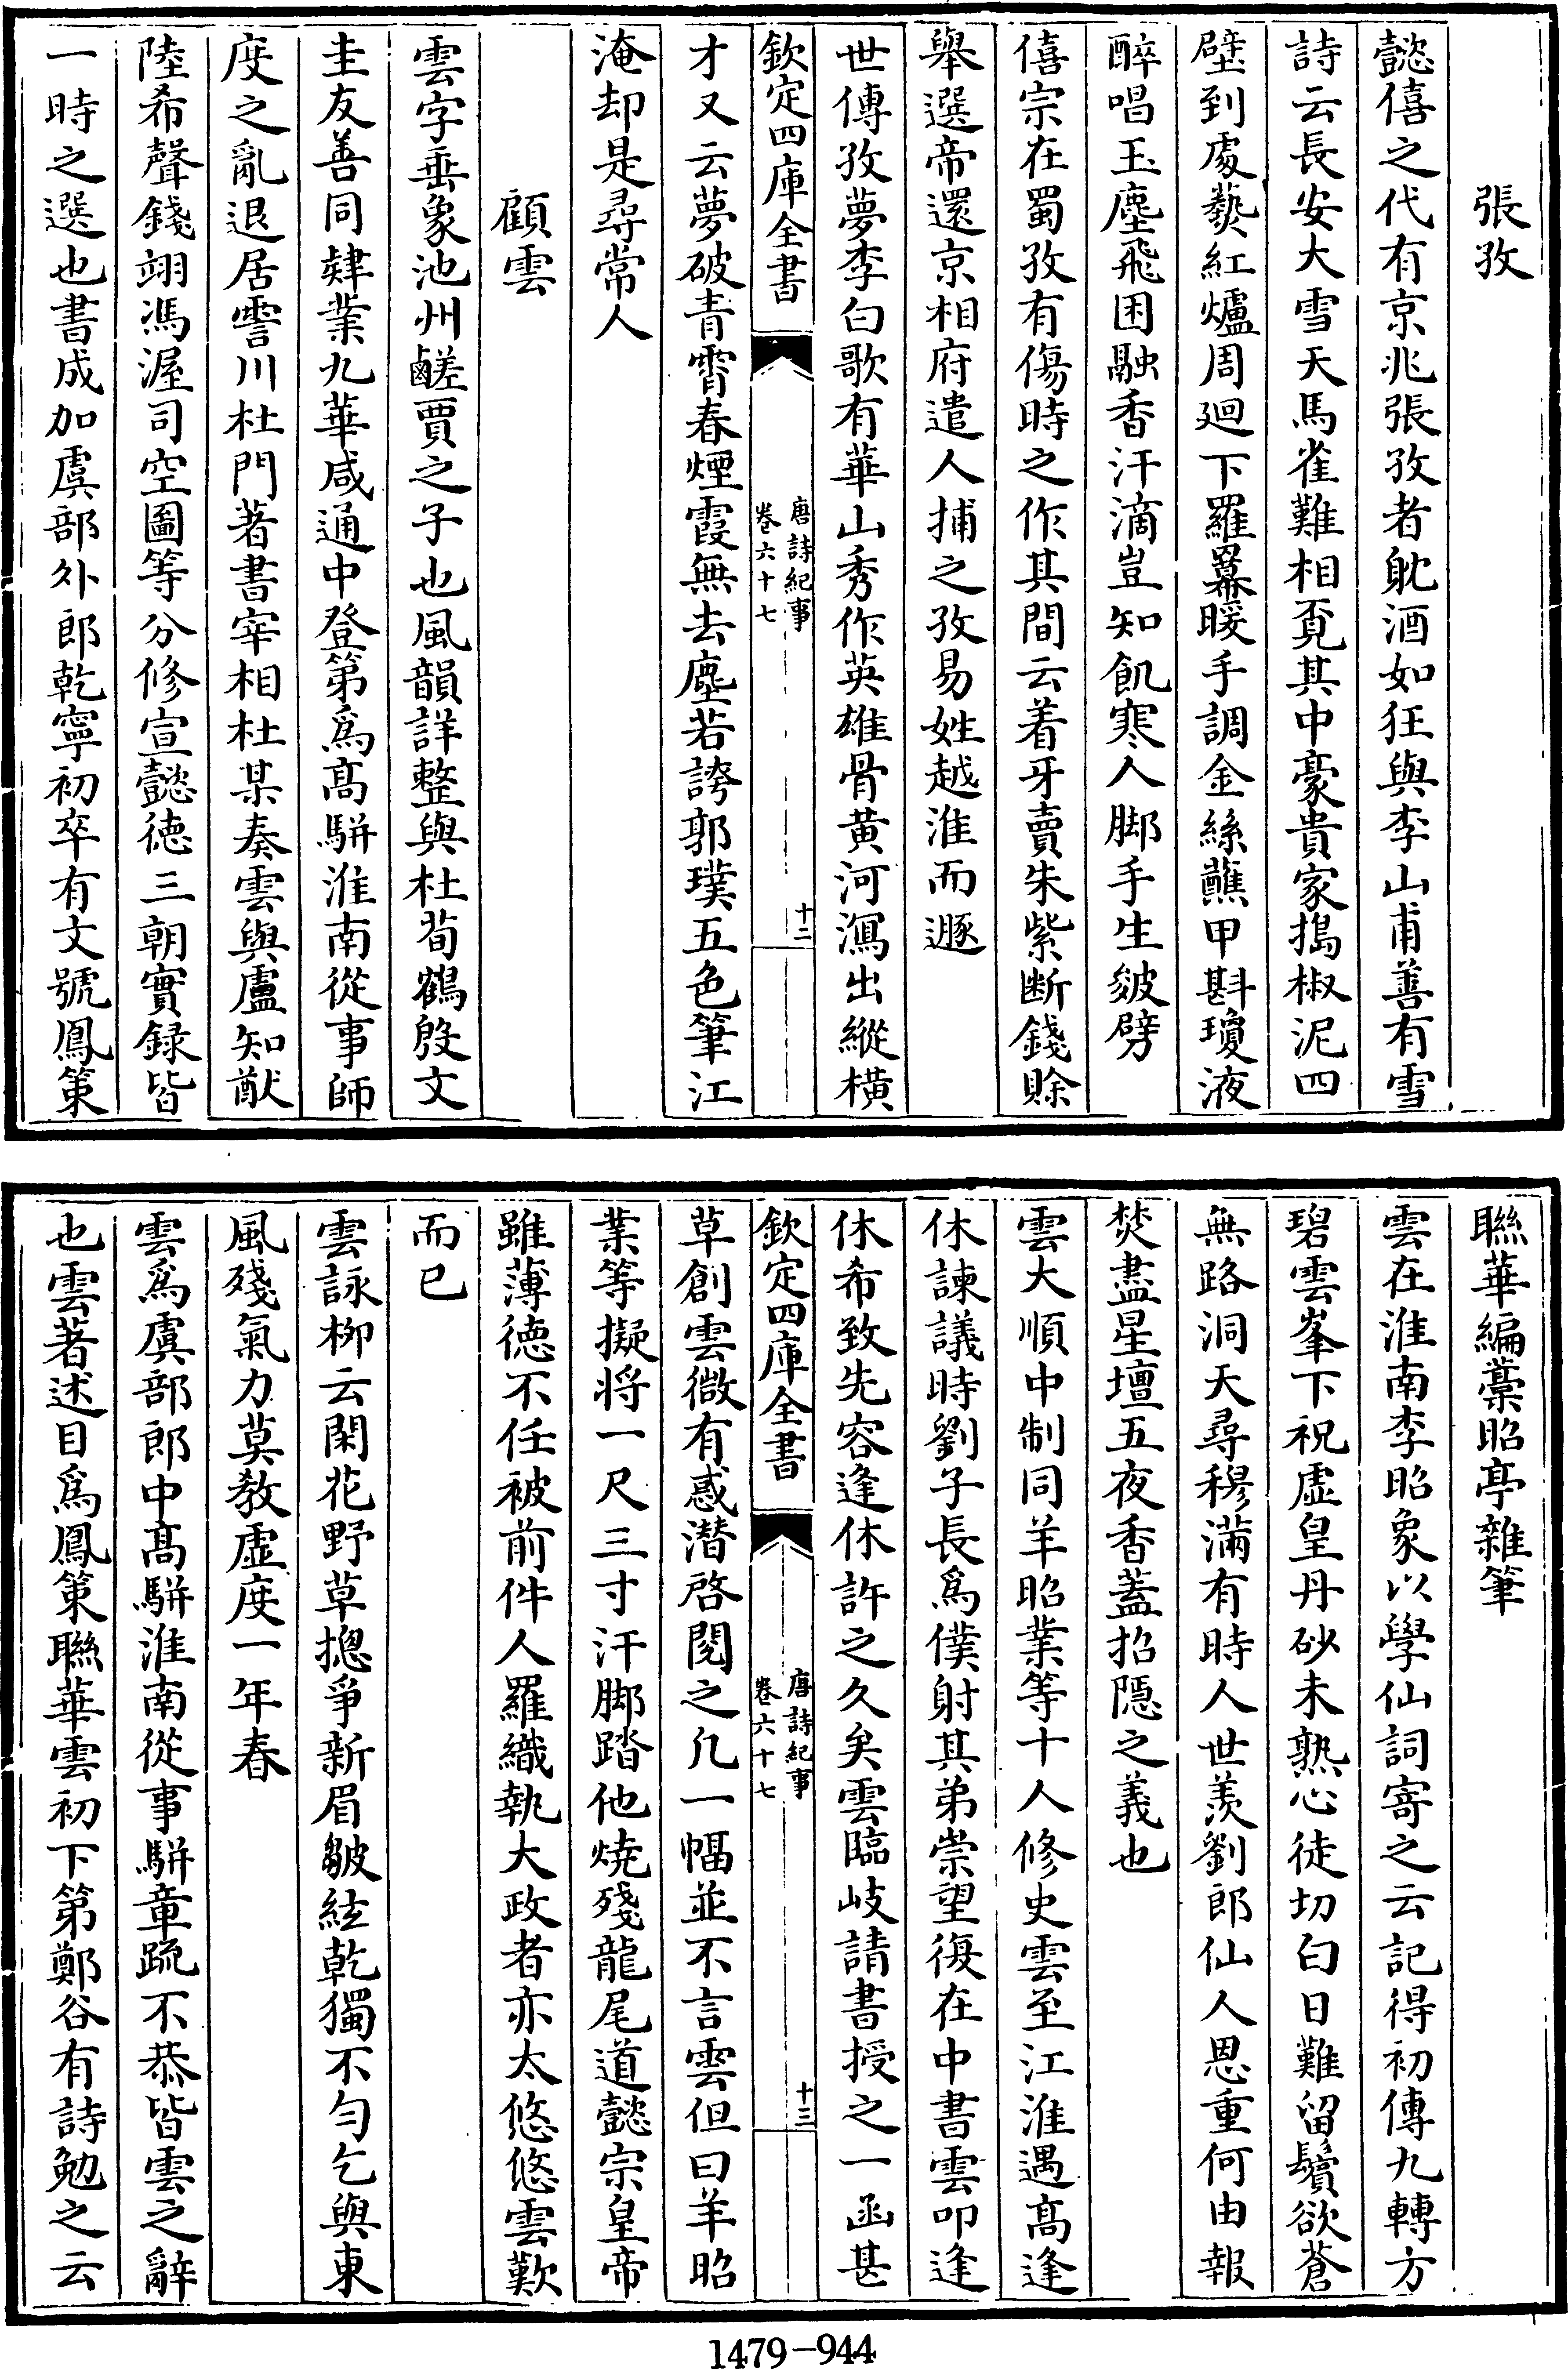 張孜
懿僖之代有京兆張孜者躭酒如狂與李山甫善有雪
詩云長安大雪天馬雀難相覔其中豪貴家搗椒泥四
壁到處爇紅爐周廻下羅冪暖手調金絲蘸甲斟瓊液
醉唱玉塵飛困融香汗滴豈知飢寒人脚手生皴劈
僖宗在蜀孜有傷時之作其間云着牙賣朱紫断錢賒
舉選帝還京相府遣人捕之孜易姓越淮而遯
世傳孜夢李白歌有華山秀作英雄骨黄河瀉出縱橫
欽定四庫全書
唐詩紀事
卷六十七
十二
才又云夢破青霄春煙霞無去塵若誇郭璞五色筆江
淹却是尋常人
顧雲
雲字垂象池州鹺賈之子也風韻詳整與杜荀鶴殷文
圭友善同肄業九華咸通中登第爲髙駢淮南從事師
度之亂退居霅川杜門著書宰相杜某奏雲與盧知猷
陸希聲錢翊馮渥司空圖等分修宣懿德三朝實録皆
一時之選也書成加虞部外郎乾寧初卒有文號鳳策
聯華編藁昭亭雜筆
雲在淮南李昭象以學仙詞寄之云記得初傳九轉方
碧雲峯下祝虛皇丹砂未熟心徒切白日難留鬢欲蒼
無路洞天尋穆滿有時人世羨劉郎仙人恩重何由報
焚盡星壇五夜香蓋招隠之義也
雲大順中制同羊昭業等十人修史雲至江淮遇髙逢
休諫議時劉子長爲僕射其弟崇望復在中書雲叩逢
休希致先容逢休許之久矣雲臨岐請書授之一函甚
欽定四庫全書
唐詩紀事
卷六十七
十三
草創雲微有惑潛啓閱之凡一幅並不言雲但曰羊昭
業等擬将一尺三寸汗脚踏他焼殘龍尾道懿宗皇帝
雖薄徳不任被前件人羅織執大政者亦太悠悠雲歎
而已
雲詠栁云閑花野草摠爭新眉皺絃乾獨不勻乞與東
風殘氣力莫教虛度一年春
雲爲虞部郎中髙駢淮南從事駢章疏不恭皆雲之辭
也雲著述目爲鳳策聯華雲初下第鄭谷有詩勉之云
1479-944